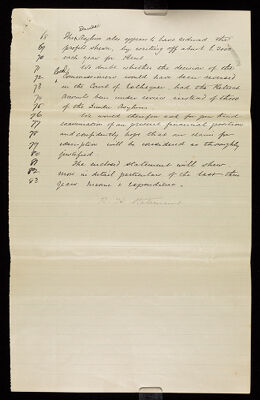 Dundee
68 This Asylum also appear to have reduced the
69 profit shown, by writing off about £2000
70 each year for Rent.
71 We doubt whether the decision of the
72 Commissioners would have been reversed
73 in the Court of Exchequer had the Retreat
74 Accounts been under review instead of those
75 of the Dundee Asylum.
76 We would therefore ask for your kind
77 examination of our present financial position
78 and confidently hope that our claim for
79 exemption will be considered as thoroughly
80 justified.
81 The enclosed statement will shew
82 more in detail particulars of the last three
83 years Income & Expenditure.